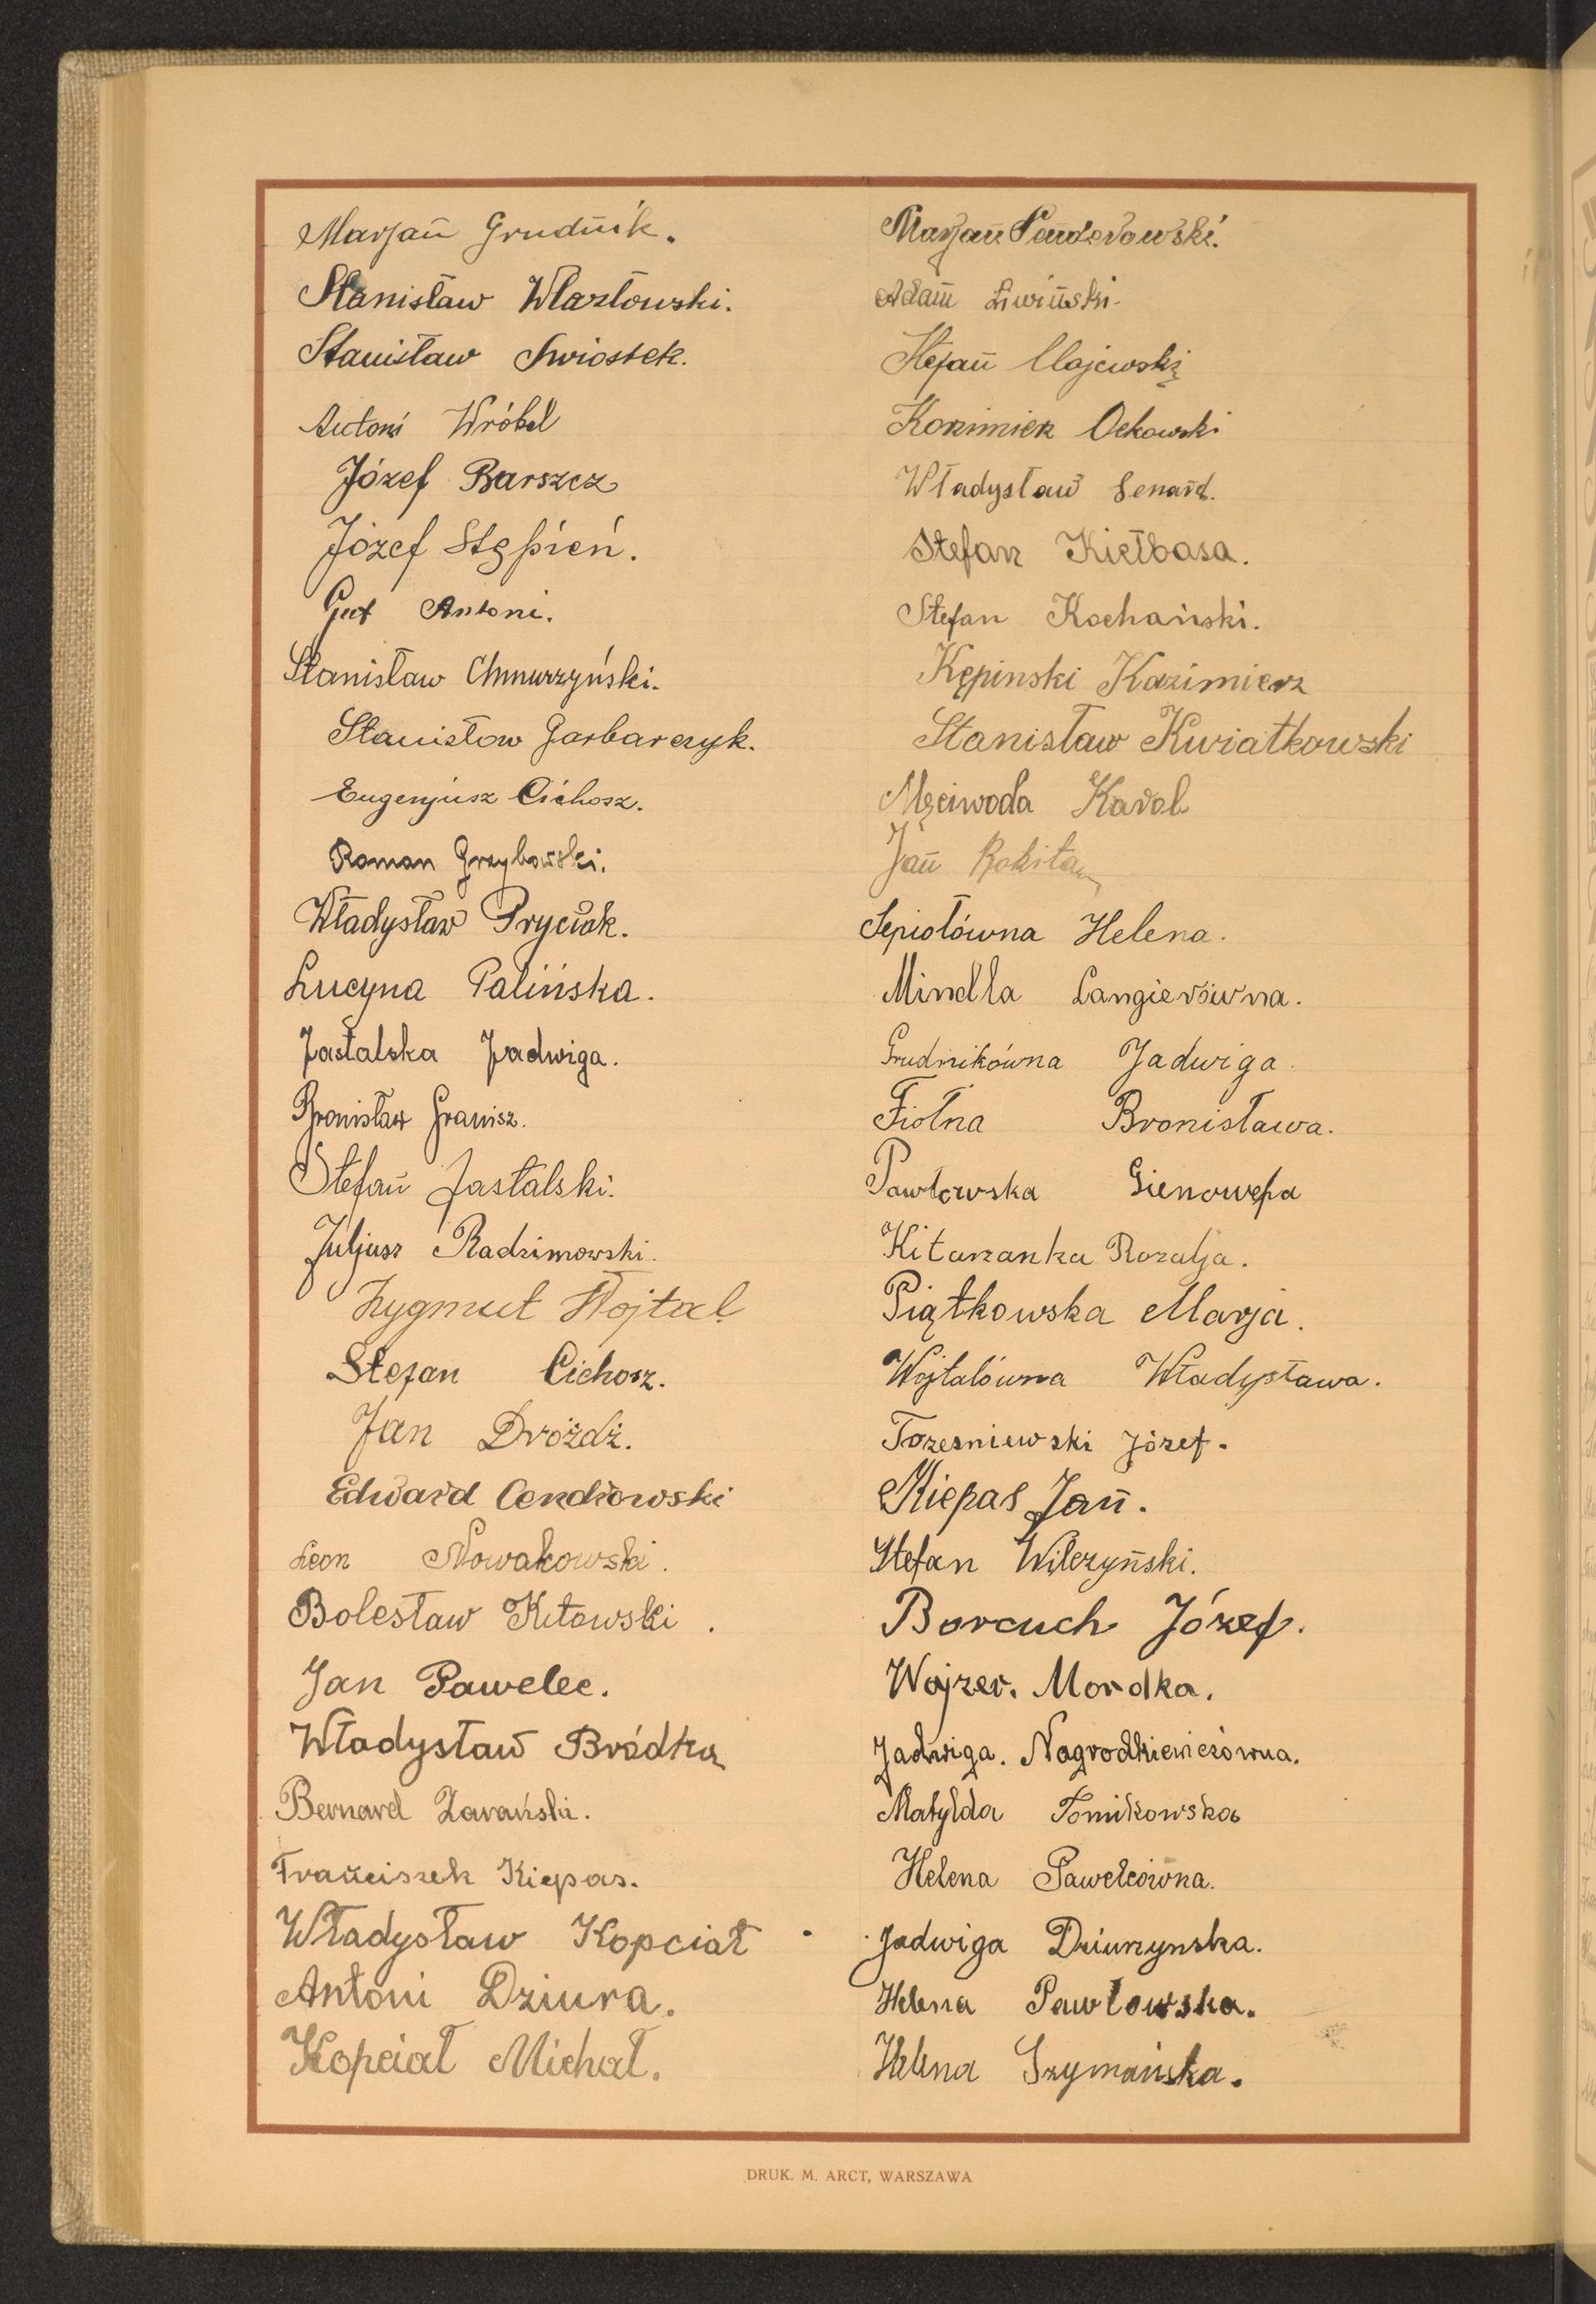 Marjan Grudnik.
Stanisław Wlazłowski.
Stanisław Swiostek.
Antoni Wróbel
Józef Barszcz
Józef Stępień.
Gut Antoni.
Stanisław Chmurzyński.
Stanisław Garbarczyk.
Eugenjusz Cichosz.
Roman Grzybowski.
Władysław Pryciak.
Lucyna Palińska.
Jastalska Jadwiga.
Bronisław Granisz.
Stefan Jastalski.
Juljusz Radzimowski.
Zygmut Wojtal
Stefan Cichosz.
Jan Dróżdż.
Edward Cendrowski
Leon Nowakowski.
Bolesław Kitowski.
Jan Pawelec.
Władysław Bródka
Bernard Zarański.
Franciszek Kiepas.
Władysław Kopciał
Antoni Dziura.
Kopciał Michał.
Marjan Penderowski.
Adam Liwiński.
Stefan Majewski
Kazimierz Ockowski
Władysław Senard.
Stefan Kiełbasa.
Stefan Kochański.
Kępinski Kazimierz
Stanisław Kwiatkowski
Męciwoda Karol
Jan Rokita
Sepiołówna Helena.
Mindla Langierówna.
Grudnikówna Jadwiga.
Fiołna Bronisława.
Pawłowska Gienowefa
Kitarzanka Rozalja.
Piątkowska Marja.
Wojtalówna Władysława.
Trzesniewski Józef.
Kiepas Jan.
Stefan Wilczyński.
Borcuch Józef.
Wajzer. Mordka.
Jadwiga. Nagrodkiewiczówna.
Matylda Tomikowska
Helena Pawelcówna.
Jadwiga Dziurzynska.
Helena Pawłowska.
Helena Szymańska.
DRUK. M. ARCT, WARSZAWA